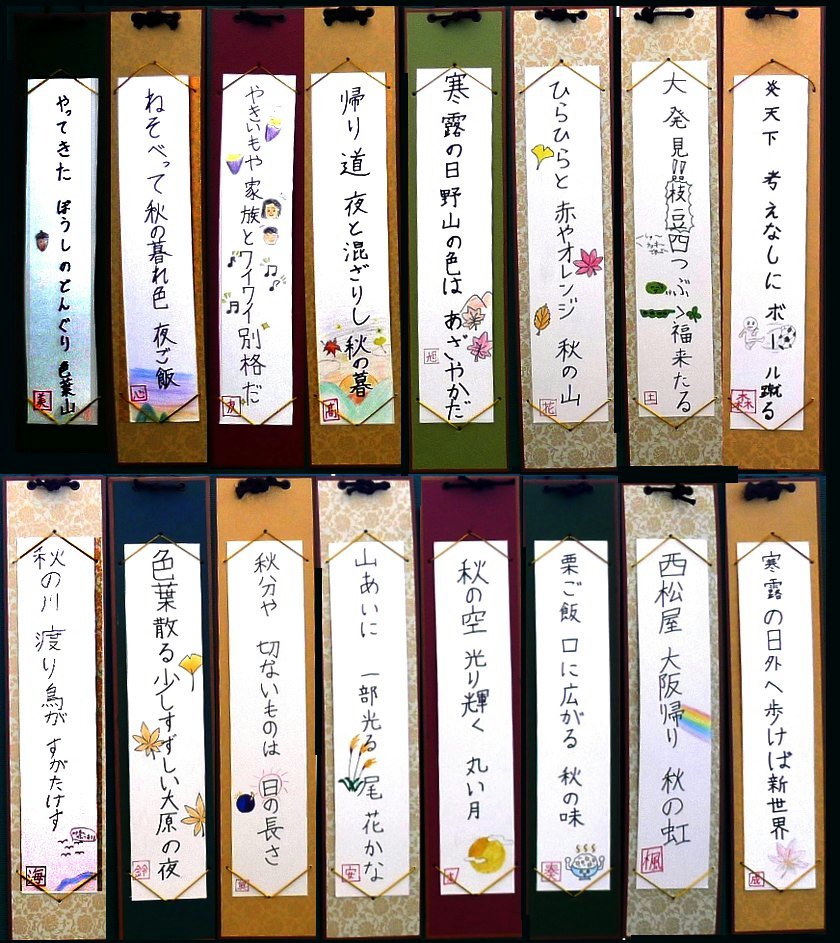 炎天下 考えなしに ボール蹴る
森
大発見!! 枝豆四つぶ 福来たる
土
ひらひらと 赤やオレンジ 秋の山
花
寒露の日 野山の色は あざやかだ
旭
帰り道 夜と混ざりし 秋の暮
高
やきいもや 家族とワイワイ 別格だ
ねそべって 秋の暮れ色 夜ご飯
心
やってきた ぼうしのどんぐり 色葉山
美
寒露の日 外へ歩けば 新世界
成
西松屋 大阪帰り 秋の虹
楓
栗ご飯 口に広がる 秋の味
奏
秋の空 光り輝く 丸い月
山あいに 一部光る 尾花かな
安
秋分や 切ないものは 日の長さ
色葉散る 少しすずしい 大原の夜
鈴
秋の川 渡り鳥が すがたけす
海